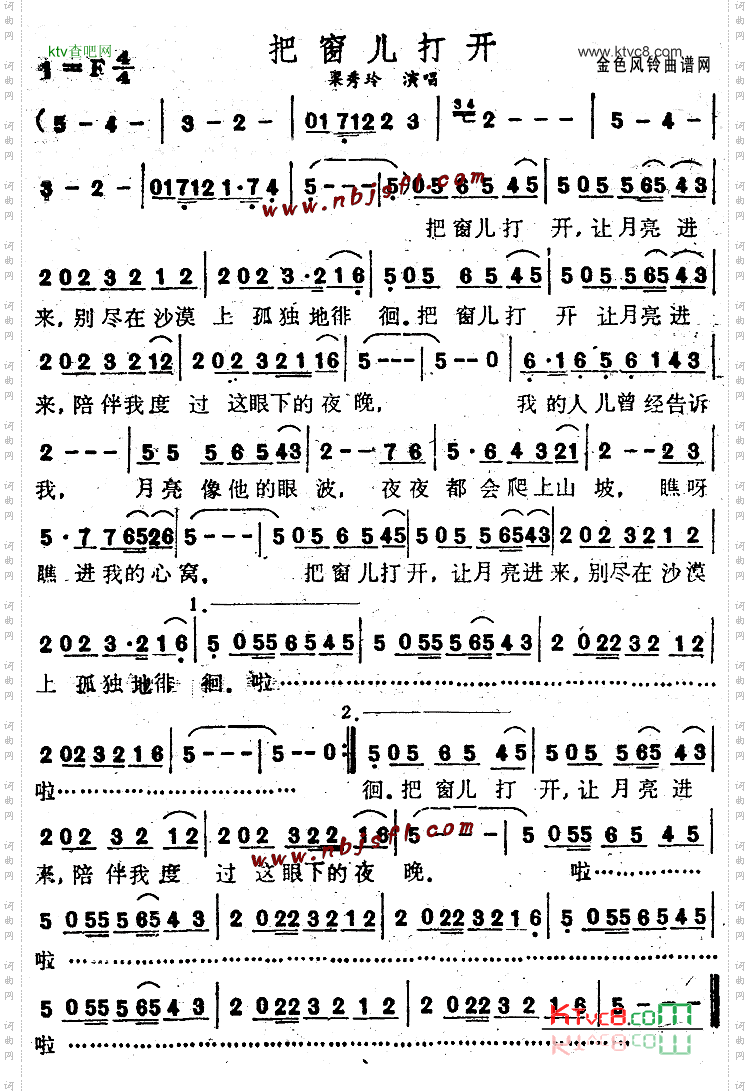 ktv查吧网
把窗儿打开
www.ktvc8.com
金色风铃曲谱网
1=F 4/4
梁秀玲 演唱
(5-4- | 3-2- | 01712223 | 34 2--- | 5-4-
3-2- | 017121·74 | 5--- | 5)05 65 45 | 505 565 43
www.nbjsft.com
把窗儿打 开,让月亮进
202 32 12 | 202 3·216 | 505 6545 | 505 56543
来,别尽在沙漠 上 孤独地徘 徊。把窗儿打 开 让月亮进
202 3212 | 202 32116 | 5--- | 5--0 | 6·165 6143
来,陪伴我度 过 这眼下的夜晚, 我的人儿曾经告诉
2--- | 55 56543 | 2--76 | 5·64321 | 2--23
我, 月亮像他的眼波, 夜夜都会爬上山坡, 瞧呀
5·776526 | 5--- | 505 6545 | 505 56543 | 202 3212
瞧进我的心窝。 把窗儿打开,让月亮进来,别尽在沙漠
1.
202 3·216 | 5 0556545 | 5 055 56543 | 2 022 32 12
上 孤独地徘 徊。啦………………
2.
202 3216 | 5--- | 5--0 :‖ 505 65 45 | 505 565 43
啦……………… 徊。把窗儿打 开,让月亮进
202 32 12 | 202 322 16 | 5--- | 5 055 6545
www.nbjsft.com
来,陪伴我度 过 这眼下的夜 晚。 啦………
5 055 56543 | 2 022 3212 | 2 022 3216 | 5 055 6545
啦………………
5 055 56543 | 2 022 32 12 | 2 022 32 16 | 5---
KTvc8.com
啦………………